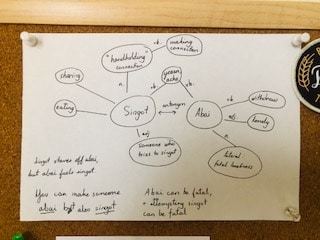 vb.
making
connection
"handholding"
connection
n.
yearn,
ache
sharing
vb.
vb.
withdraw
eating
Singot
antonym
Abai
adj
lonely
adj
n.
someone who
tries to singot
literal
fatal loneliness
Singot staves off abai,
but abai fuels singot.
You can make someone
abai but also singot
Abai can be fatal,
+ attempting singot
can be fatal